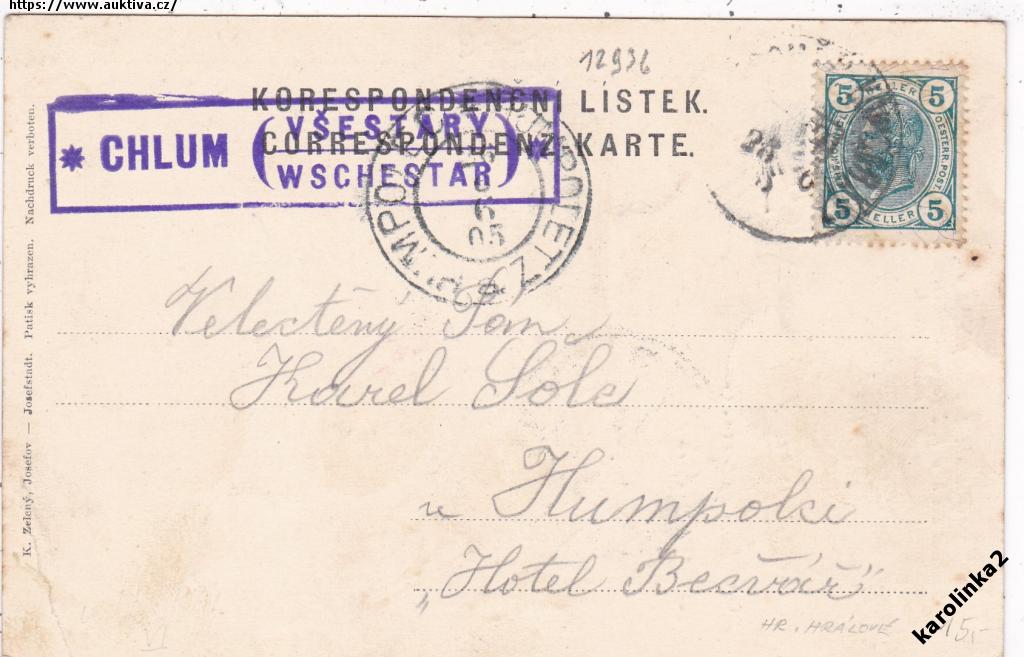 https://www.auktiva.cz/
12936
KORESPONDENČNÍ LÍSTEK.
CORRESPONDENZ-KARTE.
* CHLUM (VŠESTARY WSCHESTAR) *
HUMPOLEC
HUMPOLETZ
6
05
5 HELLER 5
OESTERR. POST.
5 HELLER 5
Velectěný Pan
Karel Šolc
v Humpolci
„Hotel Bečvář"
K. Zelený, Josefov — Josefstadt. Patisk vyhrazen. Nachdruck verboten.
HR. HRÁLOVÉ
15,-
VI
karolinka2